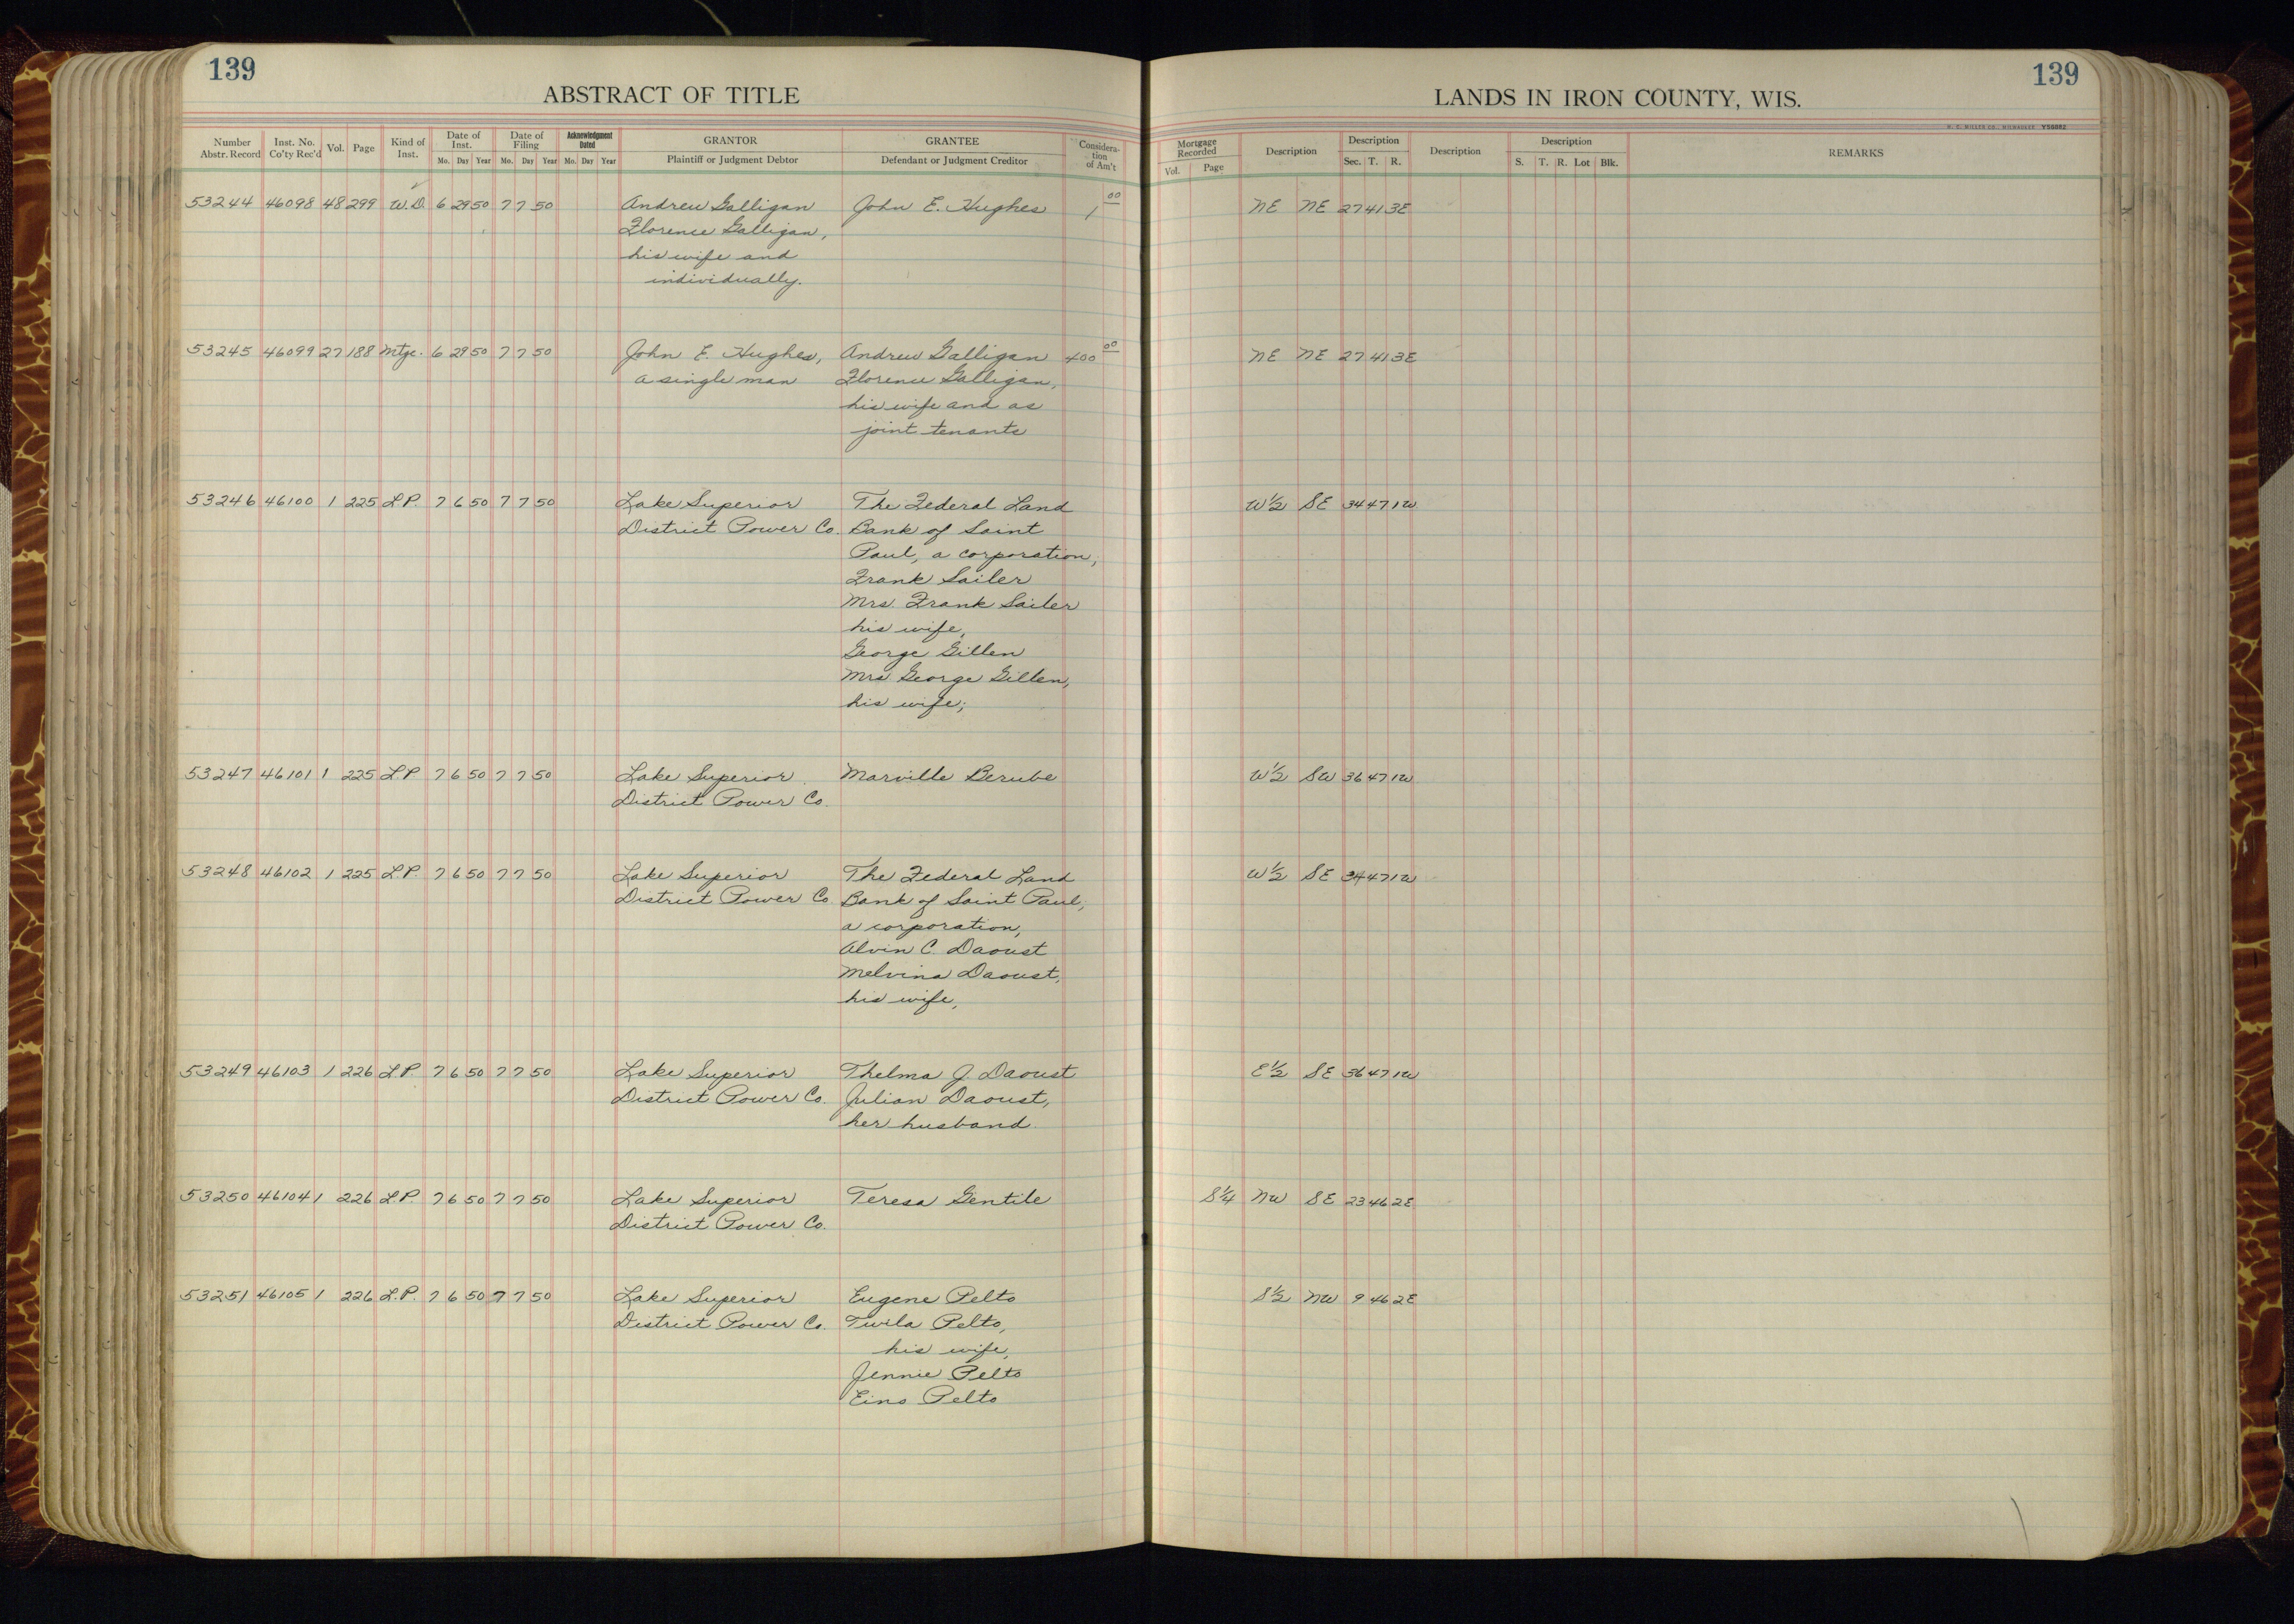 139
ABSTRACT OF TITLE
Number Abstr. Record Inst. No. Co'ty Rec'd Vol. Page Kind of Inst. Date of Inst. Mo. Day Year Date of Filing Mo. Day Year Acknowledgment Dated Mo. Day Year GRANTOR Plaintiff or Judgment Debtor GRANTEE Defendant or Judgment Creditor Considera-tion of Am't
53244 46098 48 299 W.D. 6 29 50 7 7 50 Andrew Galligan John E. Hughes 1 00
Florence Galligan,
his wife and
individually.
53245 46099 27 188 Mtge. 6 29 50 7 7 50 John E. Hughes, Andrew Galligan 400 00
a single man Florence Galligan,
his wife and as
joint tenants
53246 46100 1 225 L.P. 7 6 50 7 7 50 Lake Superior The Federal Land
District Power Co. Bank of Saint
Paul, a corporation,
Frank Sailer
Mrs. Frank Sailer
his wife,
George Gillen
Mrs George Gillen,
his wife;
53247 46101 1 225 L.P. 7 6 50 7 7 50 Lake Superior Marville Berube
District Power Co.
53248 46102 1 225 L.P. 7 6 50 7 7 50 Lake Superior The Federal Land
District Power Co. Bank of Saint Paul,
a corporation,
Alvin C. Daoust
Melvina Daoust,
his wife,
53249 46103 1 226 L.P. 7 6 50 7 7 50 Lake Superior Thelma J. Daoust
District Power Co. Julian Daoust,
her husband.
53250 46104 1 226 L.P. 7 6 50 7 7 50 Lake Superior Teresa Gentile
District Power Co.
53251 46105 1 226 L.P. 7 6 50 7 7 50 Lake Superior Eugene Pelto
District Power Co. Twila Pelto,
his wife,
Jennie Pelto
Eino Pelto
139
LANDS IN IRON COUNTY, WIS.
H. C. MILLER CO., MILWAUKEE Y56882
Mortgage Recorded Vol. Page Description Description Sec. T. R. Description Description S. T. R. Lot Blk. REMARKS
NE NE 27 41 3E
NE NE 27 41 3E
W 1/2 SE 34 47 1W
W 1/2 SW 36 47 1W
W 1/2 SE 34 47 1W
E 1/2 SE 36 47 1W
S 1/4 NW SE 23 46 2E
S 1/2 NW 9 46 2E